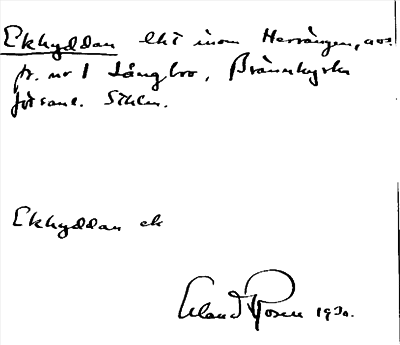 Ekhyddan lht inom Herrängen, avs.
fr. nr 1 Långbro, Brännkyrka
församl. Sthlm.
Ekhyddan ek
Erland Rosell 1930.